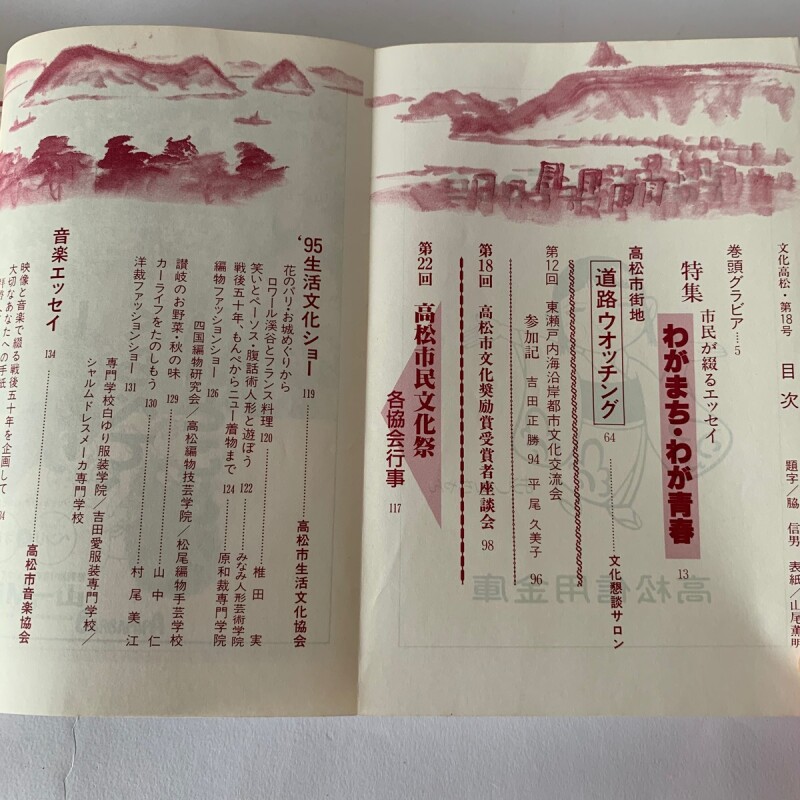 文化高松・第18号 目次
題字/脇 信男 表紙/山尾薫明
巻頭グラビア……5
特集 市民が綴るエッセイ
わがまち・わが青春 13
高松市街地
道路ウオッチング 64 文化懇談サロン
第12回 東瀬戸内海沿岸都市文化交流会
参加記 吉田正勝 94 平尾久美子 96
第18回 高松市文化奨励賞受賞者座談会 98
第22回 高松市民文化祭
各協会行事 117
'95生活文化ショー 119 高松市生活文化協会
花のパリ・お城めぐりから
ロワール渓谷とフランス料理 120 椎田 実
笑いとペーソス・腹話術人形と遊ぼう 122 みなみ人形芸術学院
戦後五十年、もんぺからニュー着物まで 124 原和裁専門学院
編物ファッションショー 126
四国編物研究会/高松編物技芸学院/松尾編物手芸学校
讃岐のお野菜・秋の味 129
カーライフをたのしもう 130 山中 仁
洋裁ファッションショー 131 村尾美江
専門学校白ゆり服装学院/吉田愛服装専門学校/
シャルムドレスメーカ専門学校
音楽エッセイ 134 高松市音楽協会
映像と音楽で綴る戦後五十年を企画して
大切なあなたへの手紙
高松信用金庫